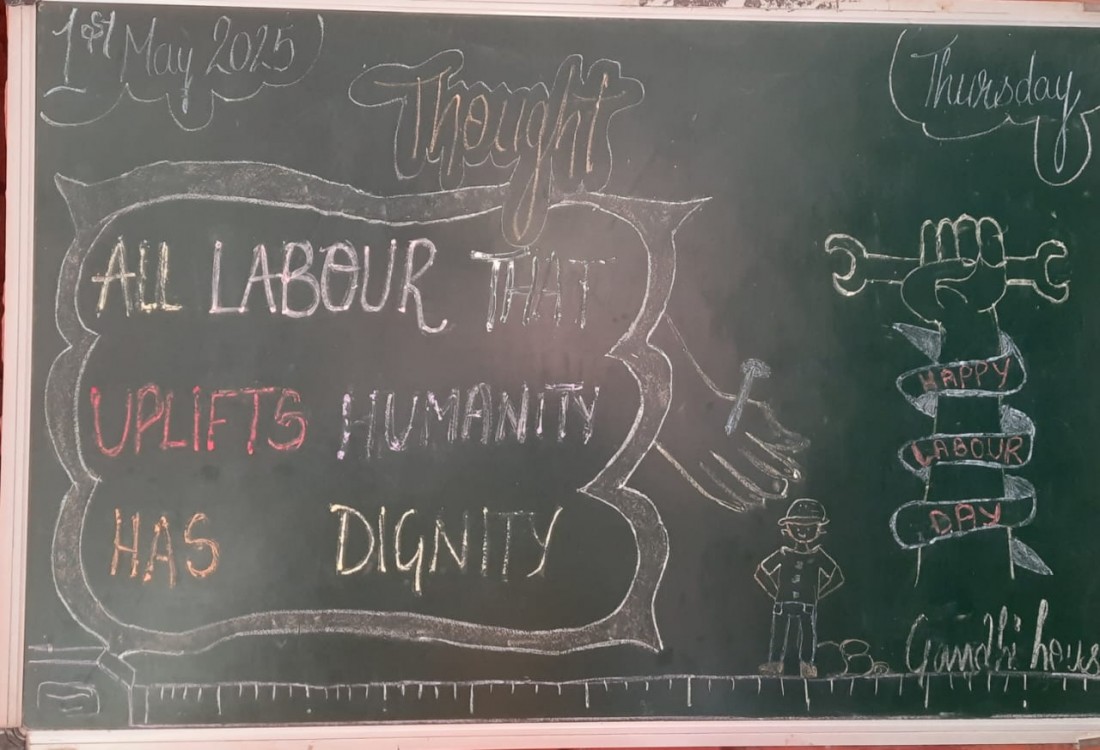 1st May 2025
Thought
Thursday
ALL LABOUR THAT
UPLIFTS HUMANITY
HAS DIGNITY
HAPPY
LABOUR
DAY
Gandhi hous